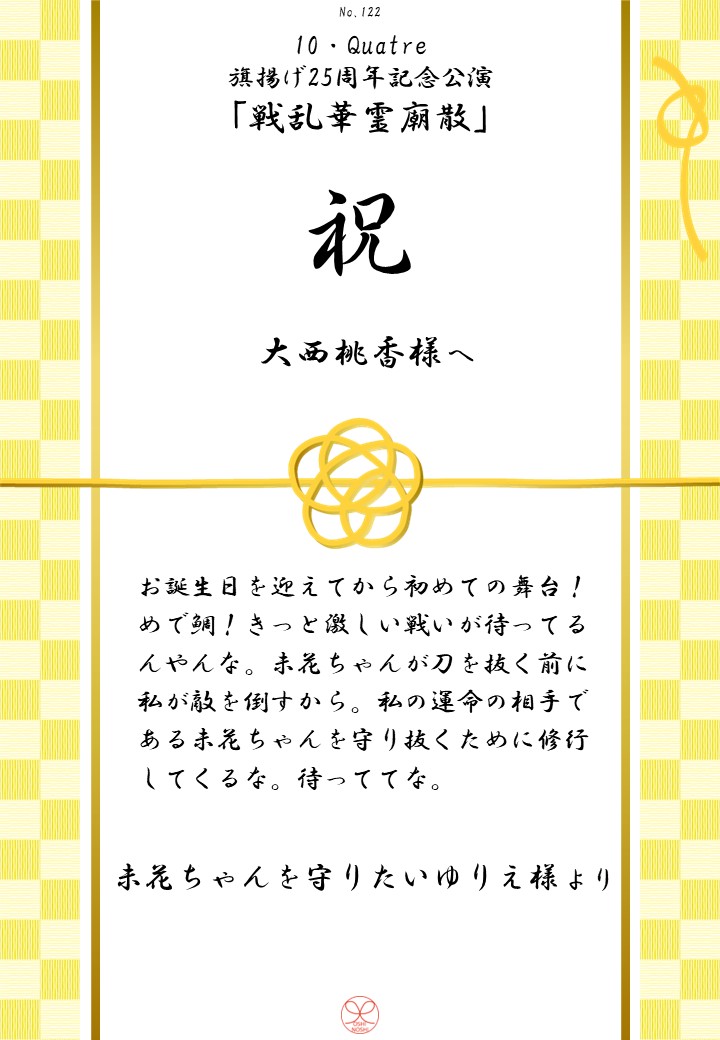 No.122
10・Quatre
旗揚げ25周年記念公演
「戦乱華霊廟散」
祝
大西桃香様へ
お誕生日を迎えてから初めての舞台！
めで鯛！きっと激しい戦いが待ってる
んやんな。未花ちゃんが刀を抜く前に
私が敵を倒すから。私の運命の相手で
ある未花ちゃんを守り抜くために修行
してくるな。待っててな。
未花ちゃんを守りたいゆりえ様より
OSHI
NOSHI